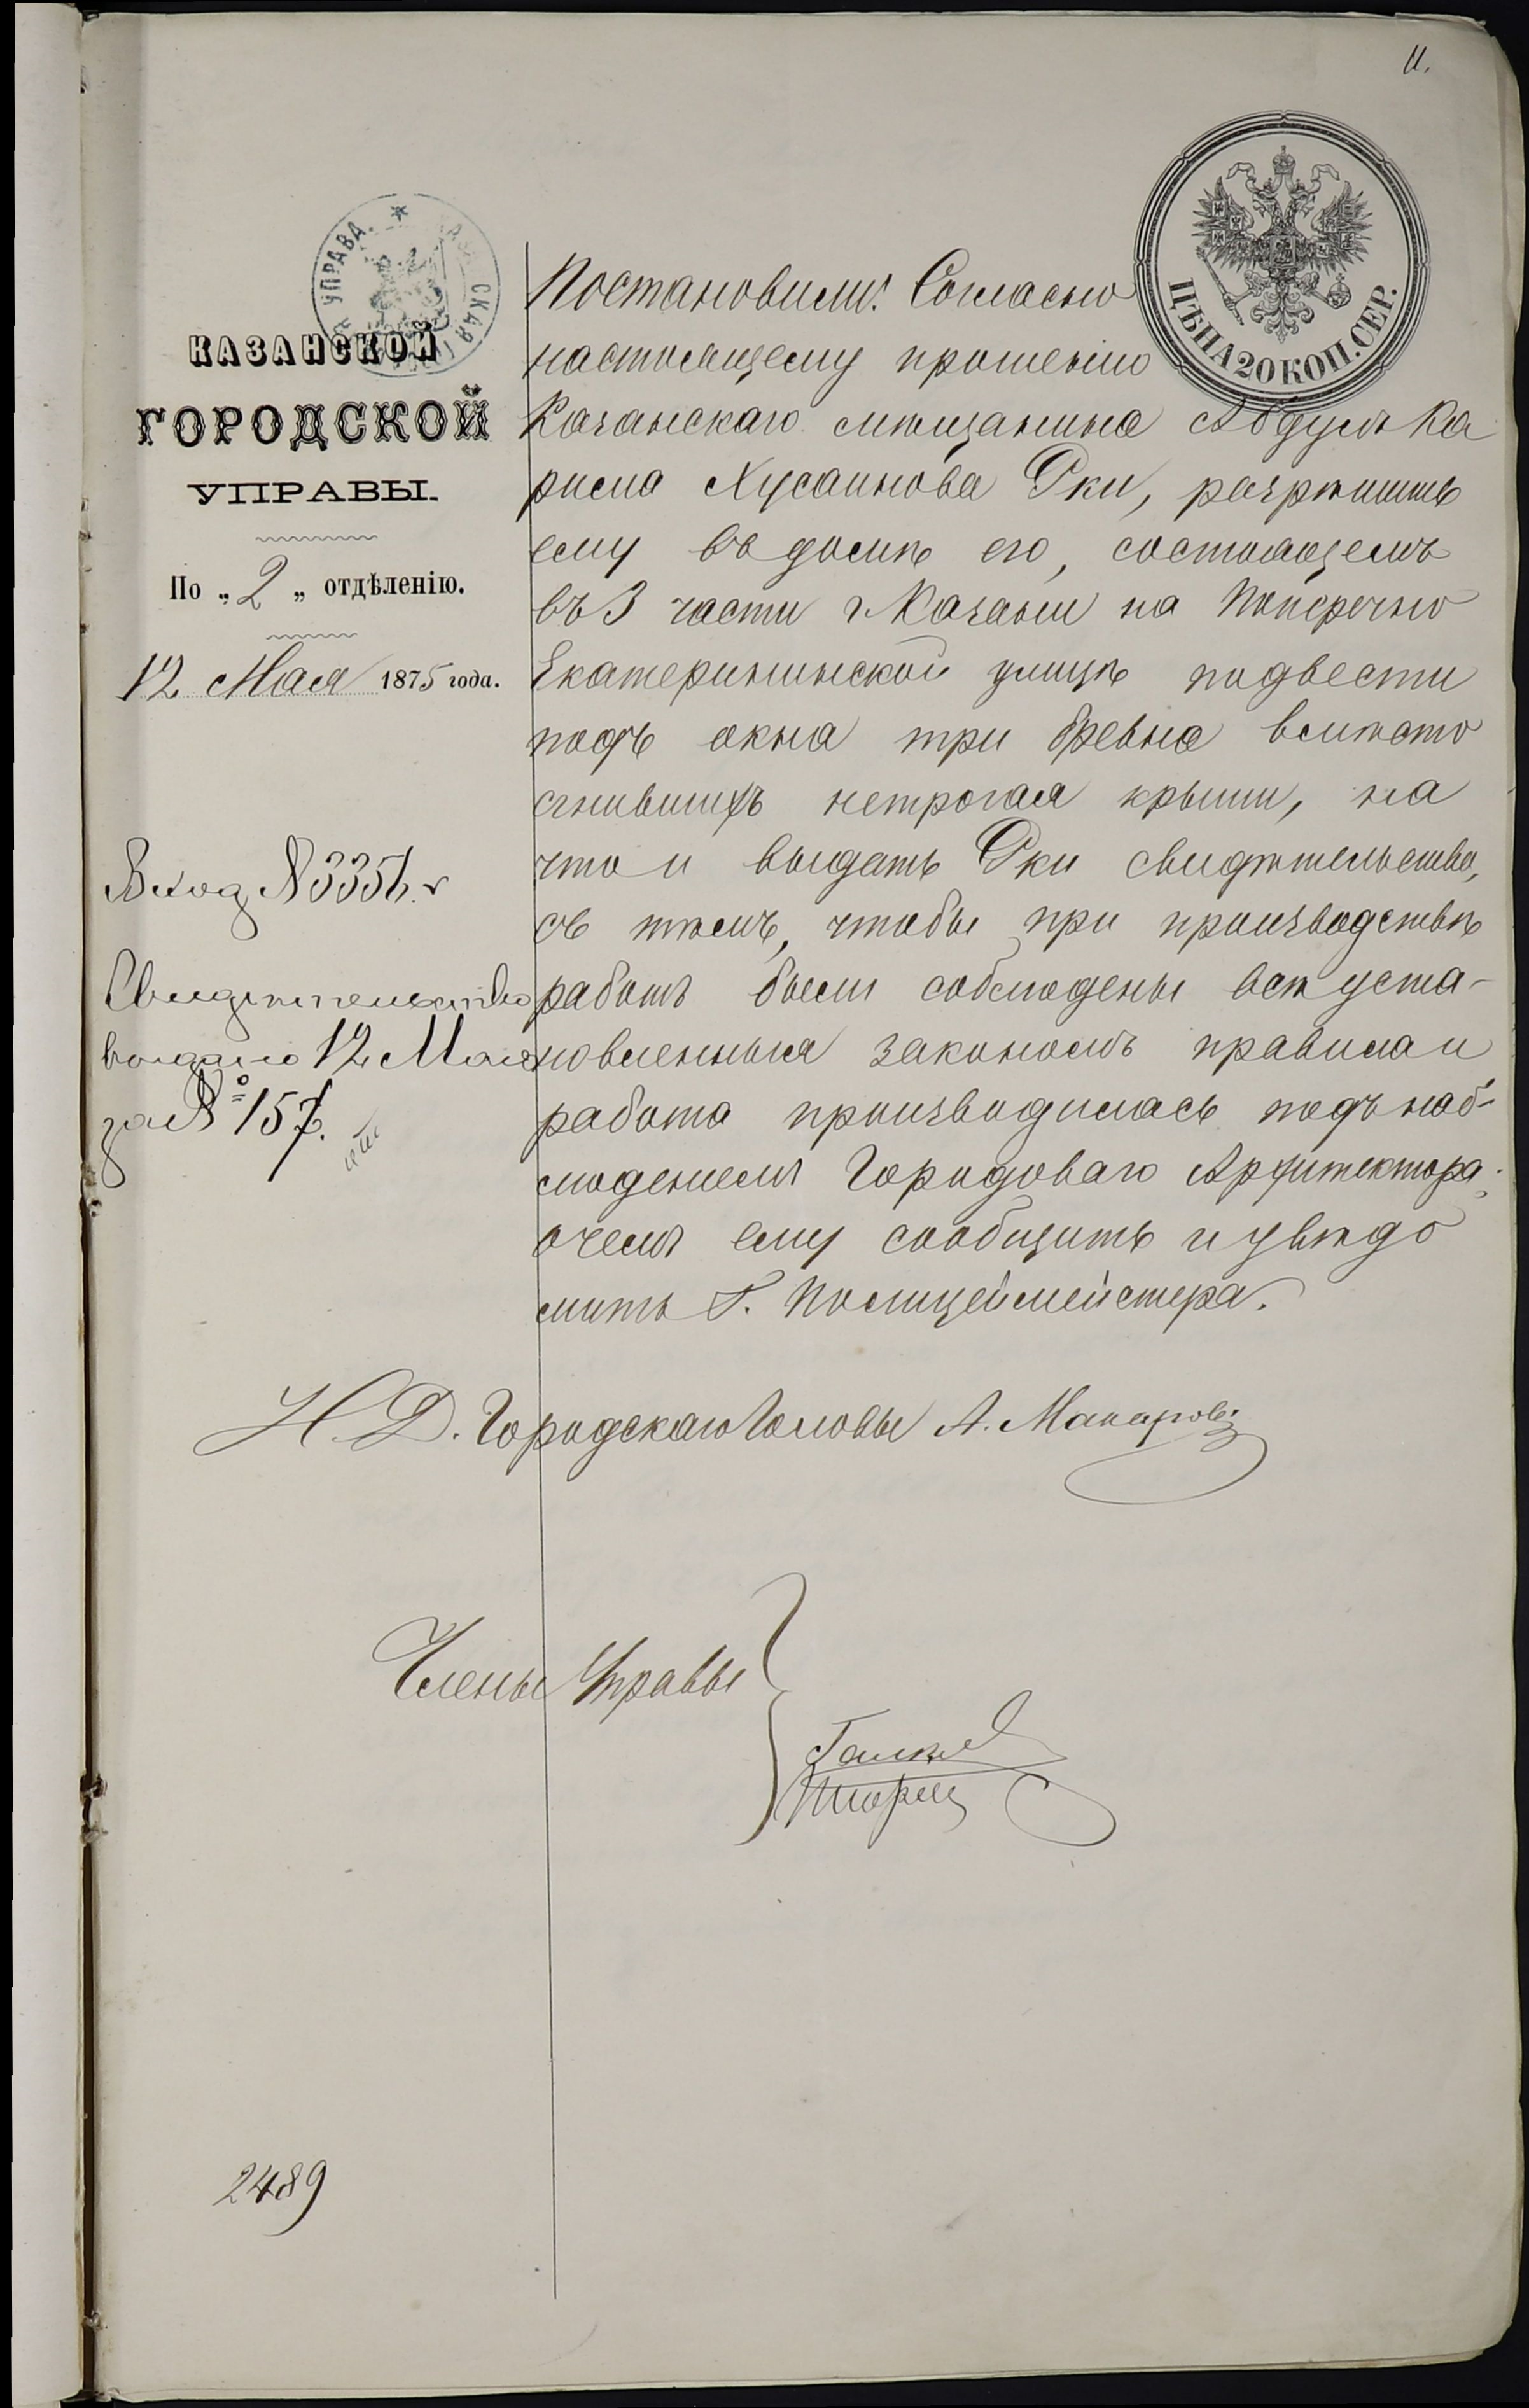 11.
УПРАВА
СКАЯ
ЦѢНА 20 КОП. СЕР.
КАЗАНСКОЙ
ГОРОДСКОЙ
УПРАВЫ.
По „2„ отдѣленію.
12 Мая 1875 года.
Вход № 3351.
Свидѣтельство
выдано 12 Мая
за № 157.
Постановили: Согласно
настоящему прошенію
Казанскаго мѣщанина Абдулъ Ка
рима Хусаинова Оки, разрѣшить
ему въ домѣ его, состоящемъ
въ 3 части г Казани на Поперечно
Екатерининской улицѣ подвести
подъ окна три бревна вмѣсто
сгнившихъ нетрогая крыши, на
что и выдать Оки свидѣтельство,
съ тѣмъ, чтобы при производствѣ
работъ были соблюдены всѣ уста-
новленныя закономъ правила и
работа производилась подъ наб-
людением Городоваго Архитектора;
очемъ ему сообщить и увѣдо
мить Г. Полицеймейстера.
Н. Д. Городскаго Головы А. Макаровъ
Члены Управы
2489